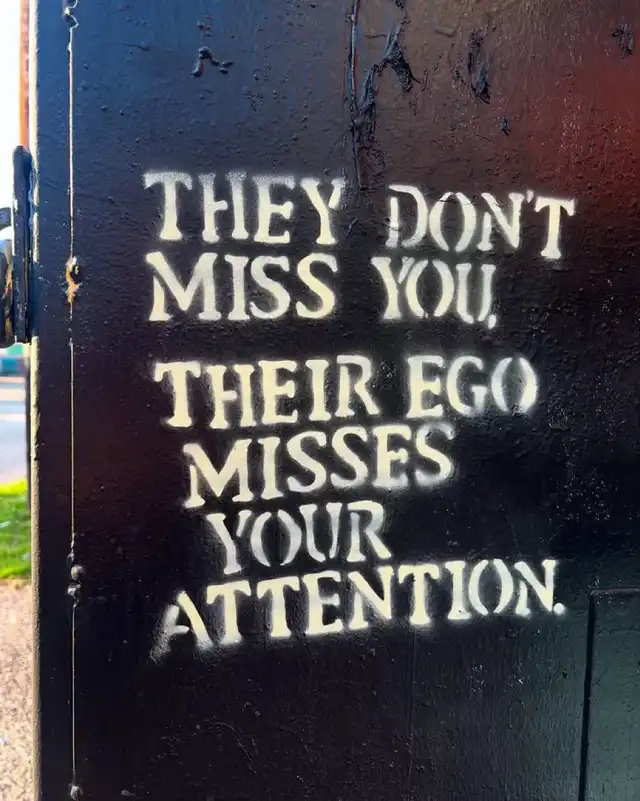 THEY DON'T
MISS YOU,
THEIR EGO
MISSES
YOUR
ATTENTION.